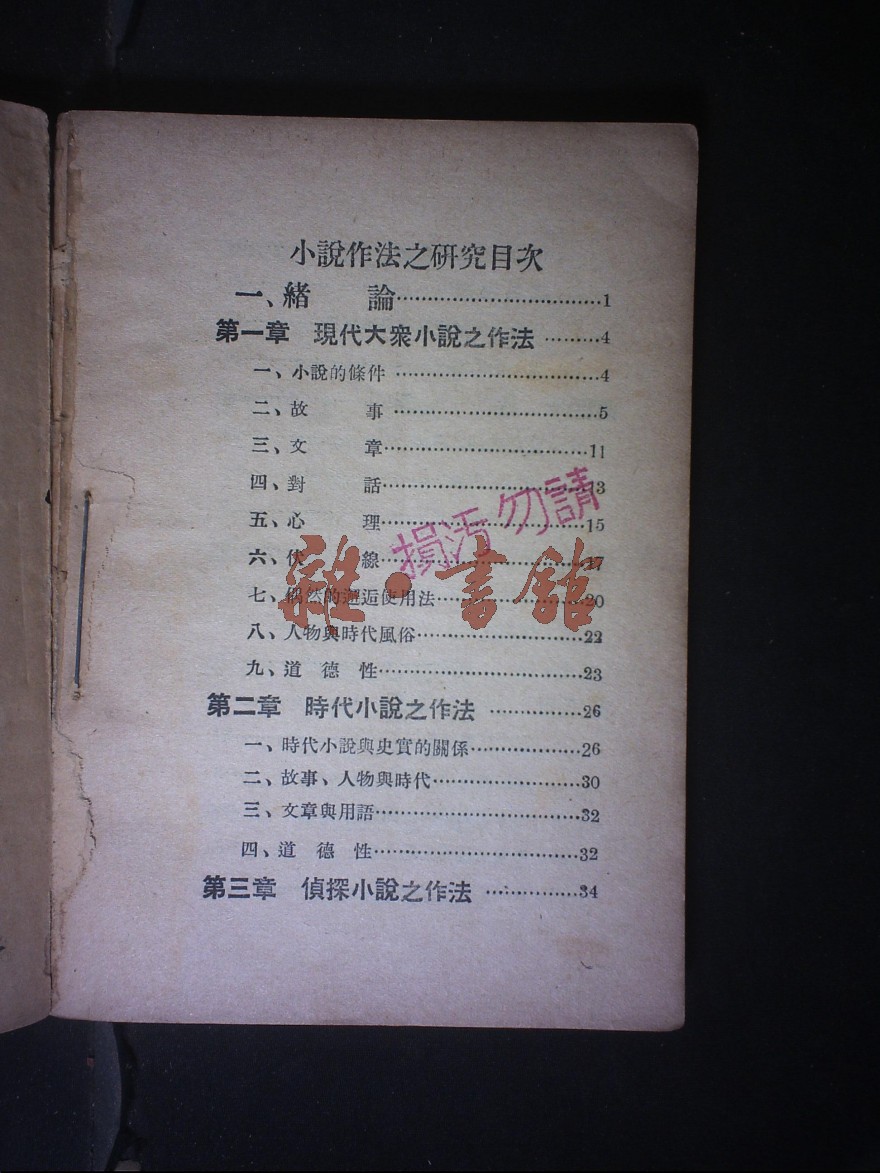 小說作法之研究目次
一、緒　論……………………………1
第一章　現代大衆小說之作法………4
一、小說的條件……………………………4
二、故　事……………………………5
三、文　章……………………………11
四、對　話……………………………13
五、心　理……………………………15
六、伏　線……………………………17
七、偶然的邂逅使用法……………………20
八、人物與時代風俗………………………22
九、道　德　性……………………………23
第二章　時代小說之作法……………26
一、時代小說與史實的關係………………26
二、故事、人物與時代……………………30
三、文章與用語……………………………32
四、道　德　性……………………………32
第三章　偵探小說之作法……………34
請勿污損
雜·書館